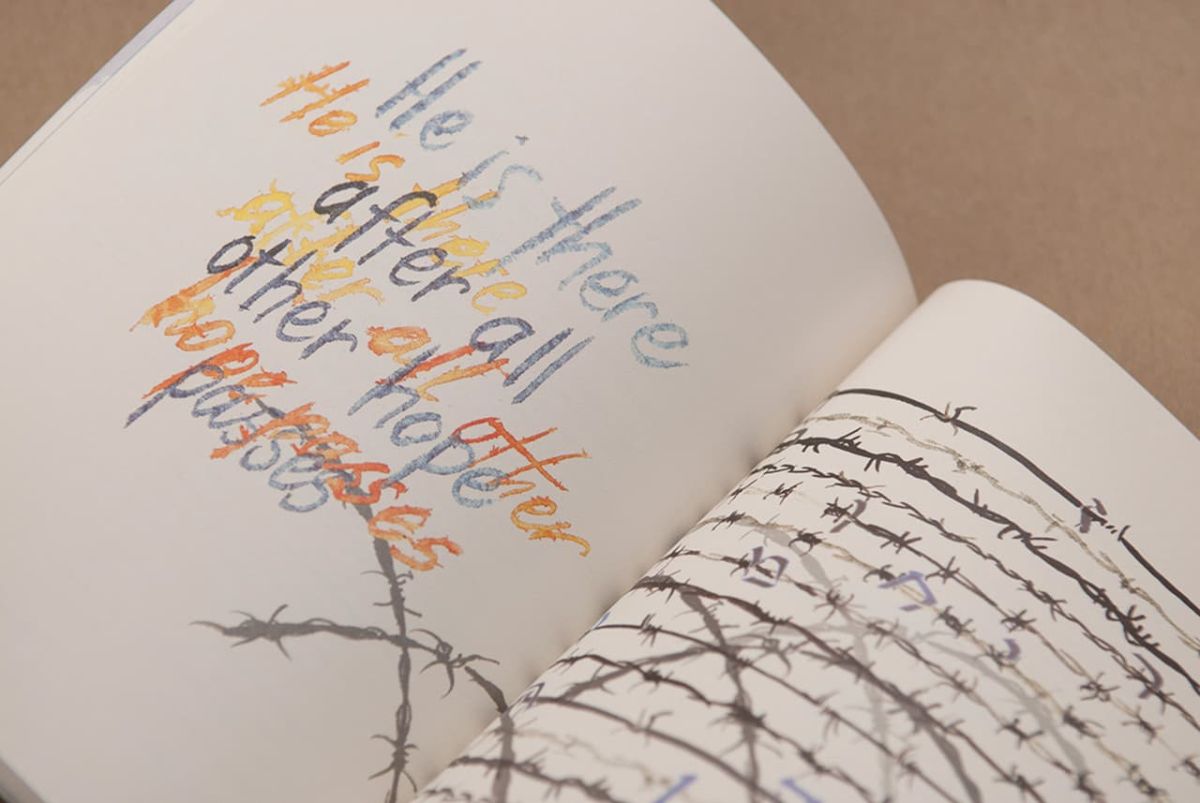 He is there
after all
other hope
passes
He is there
after all other
hope passes